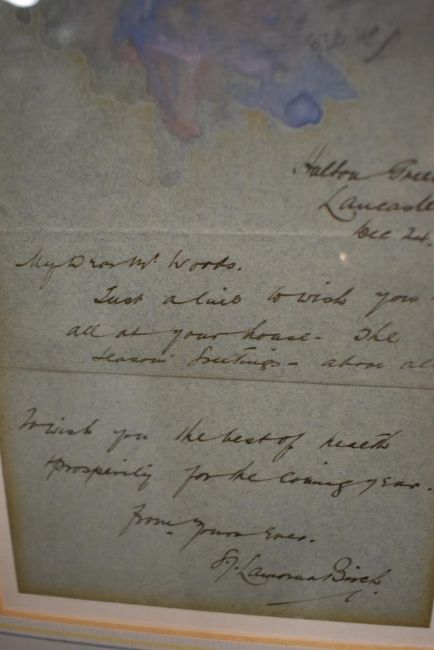 Halton Gree
Lancaste
Dec 24.
My Dear Mr Woods.
Just a line to wish you
all at your house - The
season's Greetings - above al
to wish you the best of health
& prosperity for the coming year.
From Yours Ever.
S.J. Lamorna Birch